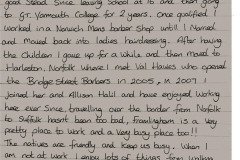 good stead since leaving School at 16 and then going
to GT. Yarmouth College for 2 years. Once qualified I
worked in a Norwich Mans barber Shop until I Married
and Moved back into Ladies hairdressing. After having
the Children I gave up for a while, and then moved to
Harleston, Norfolk where I met Val Hawes who opened
the Bridge Street Barbers in 2005, in 2007 I
joined her and Allison Hall and have enjoyed working
here ever since, travelling over the border from Norfolk
to Suffolk hasnt been too bad, Framlingham is a very
pretty place to work and a very busy place too!!
The natives are friendly and keep us busy. When I
am not at work I enjoy lots of things from walking